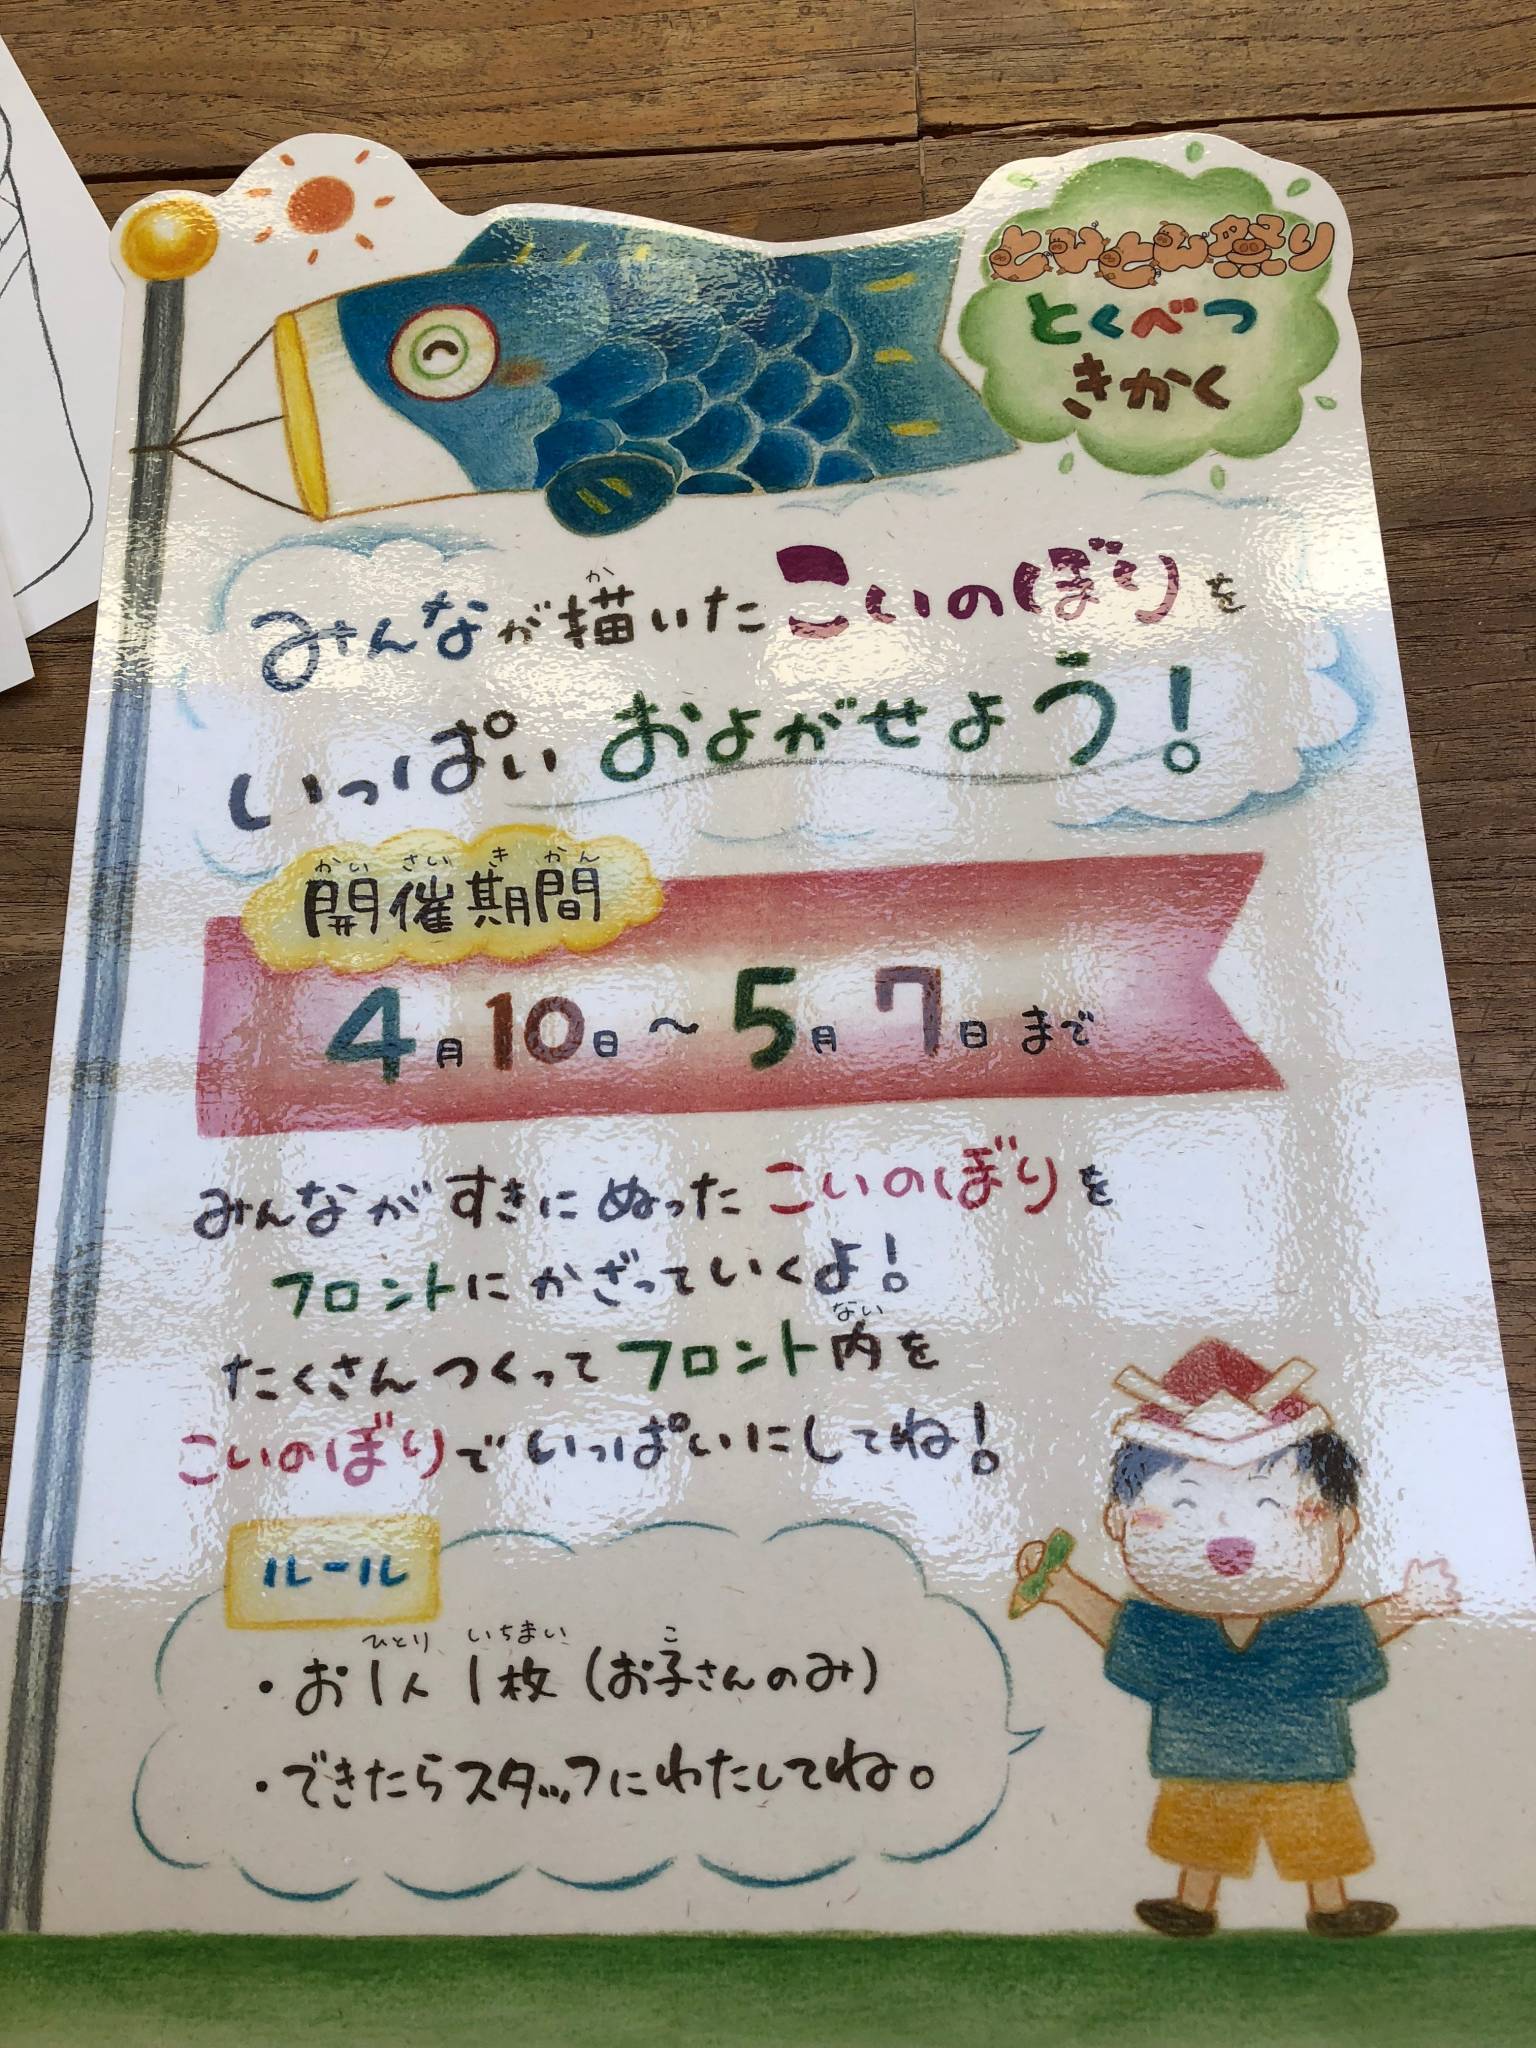 とんとん祭り
とくべつ
きかく
みんなが描いたこいのぼりを
か
いっぱいおよがせよう!
かいさいきかん
開催期間
4月10日～5月7日まで
みんながすきにぬったこいのぼりを
フロントにかざっていくよ!
ない
たくさんつくってフロント内を
こいのぼりでいっぱいにしてね!
ルール
ひとり いちまい こ
・お1人1枚(お子さんのみ)
・できたらスタッフにわたしてね。